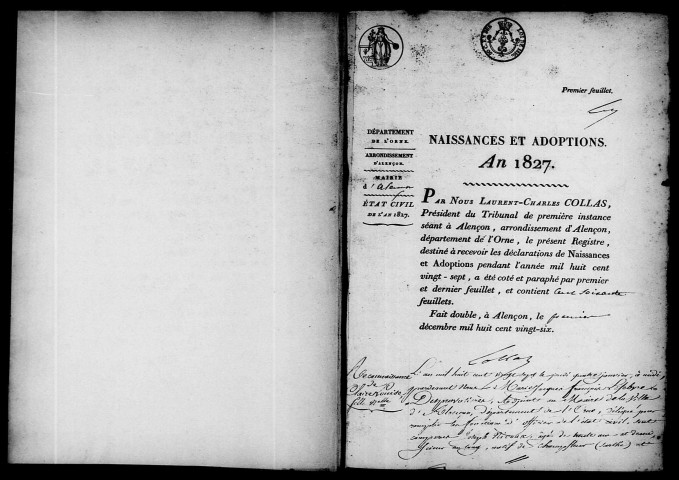 Premier feuillet.
DÉPARTEMENT
DE L'ORNE.
ARRONDISSEMENT
D'ALENÇON.
MAIRIE
ÉTAT CIVIL
DE L'AN 1827.
NAISSANCES ET ADOPTIONS.
An 1827.
PAR NOUS LAURENT-CHARLES COLLAS,
Président du Tribunal de première instance
séant à Alençon, arrondissement d'Alençon,
département de l'Orne, le présent Registre,
destiné à recevoir les déclarations de Naissances
et Adoptions pendant l'année mil huit cent
vingt-sept, a été coté et paraphé par premier
et dernier feuillet, et contient cent soixante
feuillets.
Fait double, à Alençon, le premier
décembre mil huit cent vingt-six.
Collas
Reconnaissance
de
L'an mil huit cent vingt sept le jeudi quatre janvier, à midi,
Adjoint au Maire de la Ville
d'Alençon, département de l'Orne, délégué pour
remplir les fonctions d'officier de l'état civil, est
comparu Joseph